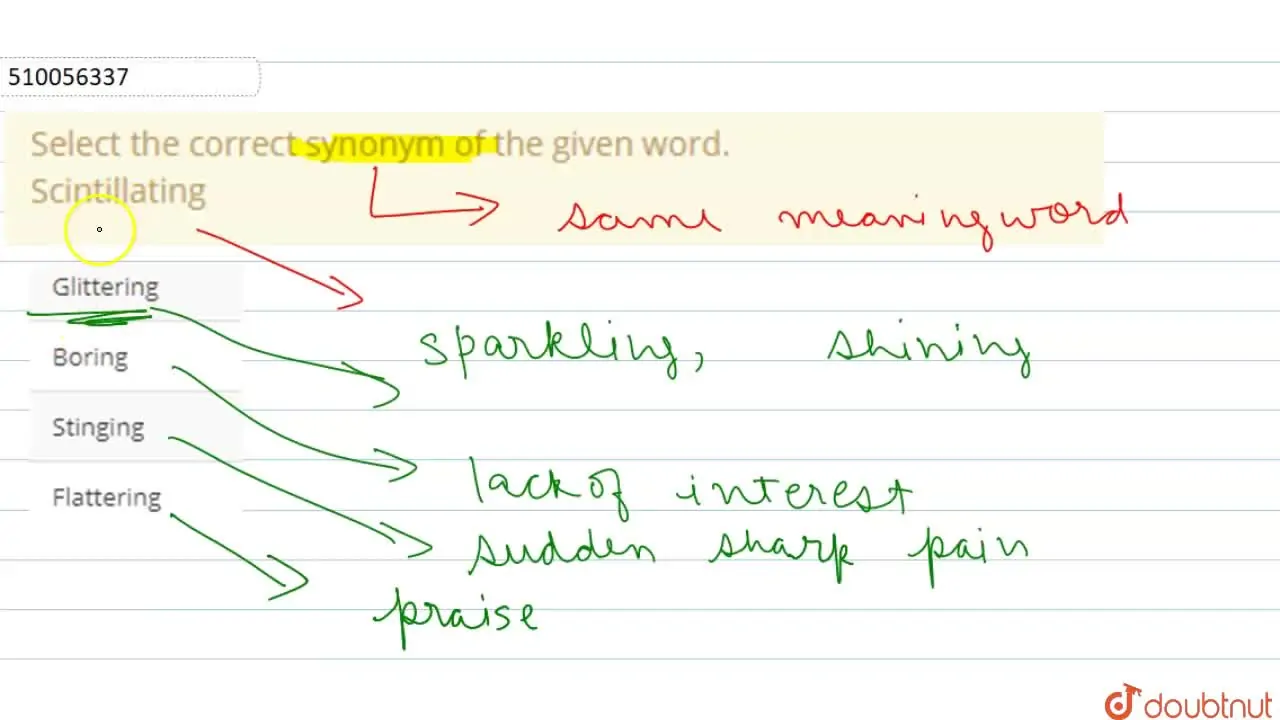 510056337
Select the correct synonym of the given word.
Scintillating
same meaning word
Glittering
sparkling, shining
Boring
Stinging
lack of interest
Flattering
sudden sharp pain
praise
doubtnut